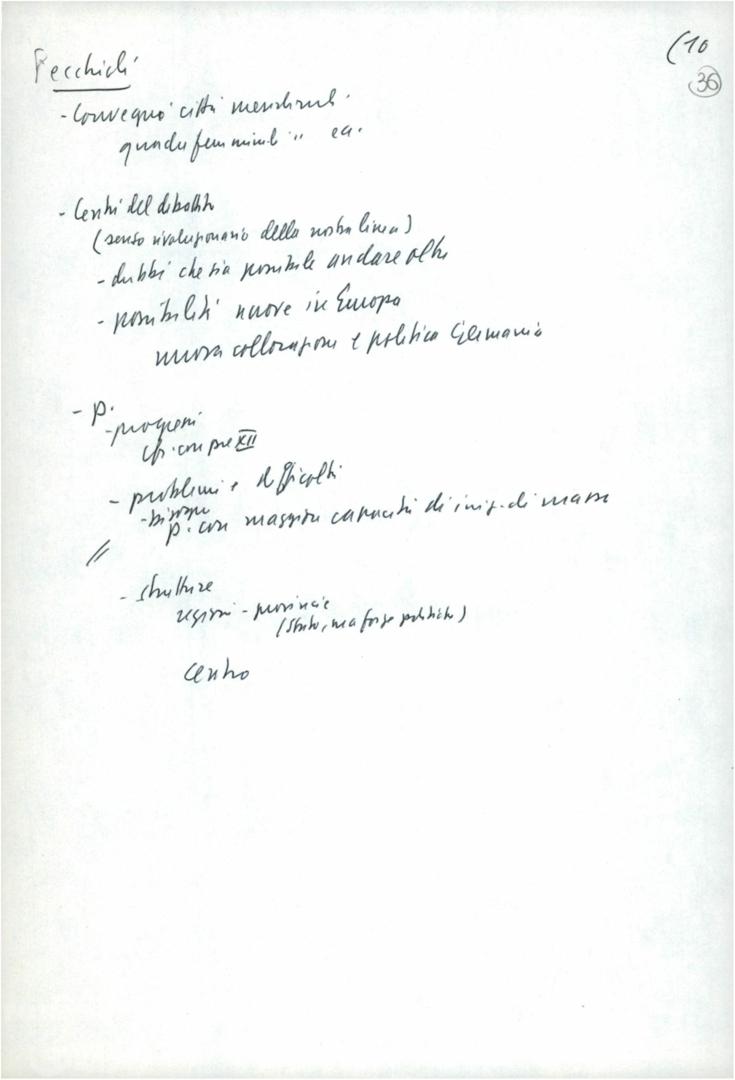 (10
36
Pecchioli
- Convegno città meridionali
quadri femminili " ecc.
- Centri del dibattito
(senso rivoluzionario della nostra linea)
- dubbi che sia possibile andare oltre
- possibilità nuove in Europa
nuova collocazione e politica Germania
- P.
- progressi
cfr. con pre XII
- problemi e difficoltà
- bisogno
p. con maggiore capacità di iniz. di massa
//
- strutture
regioni - provincie
(Stato, ma forze politiche)
Centro